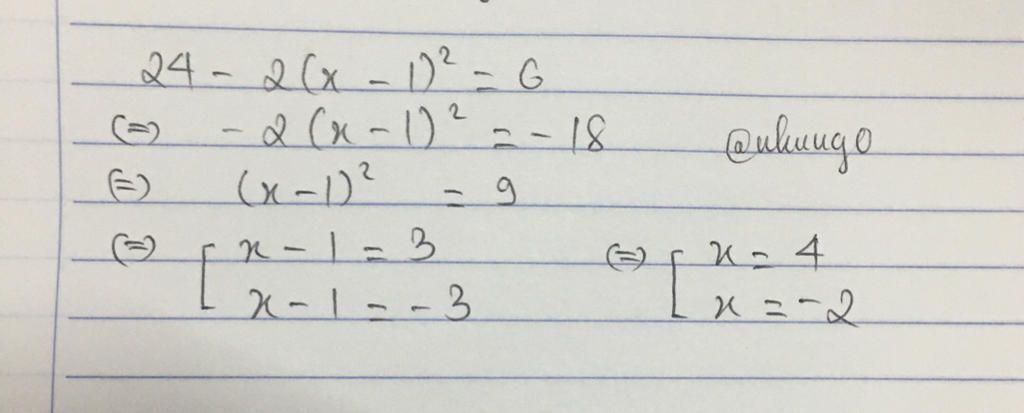 24 - 2(x - 1)² = 6
(=) - 2(x - 1)² = - 18 @nhuugo
(=) (x - 1)² = 9
(=) [ x - 1 = 3 (=) [ x = 4
x - 1 = - 3 x = - 2